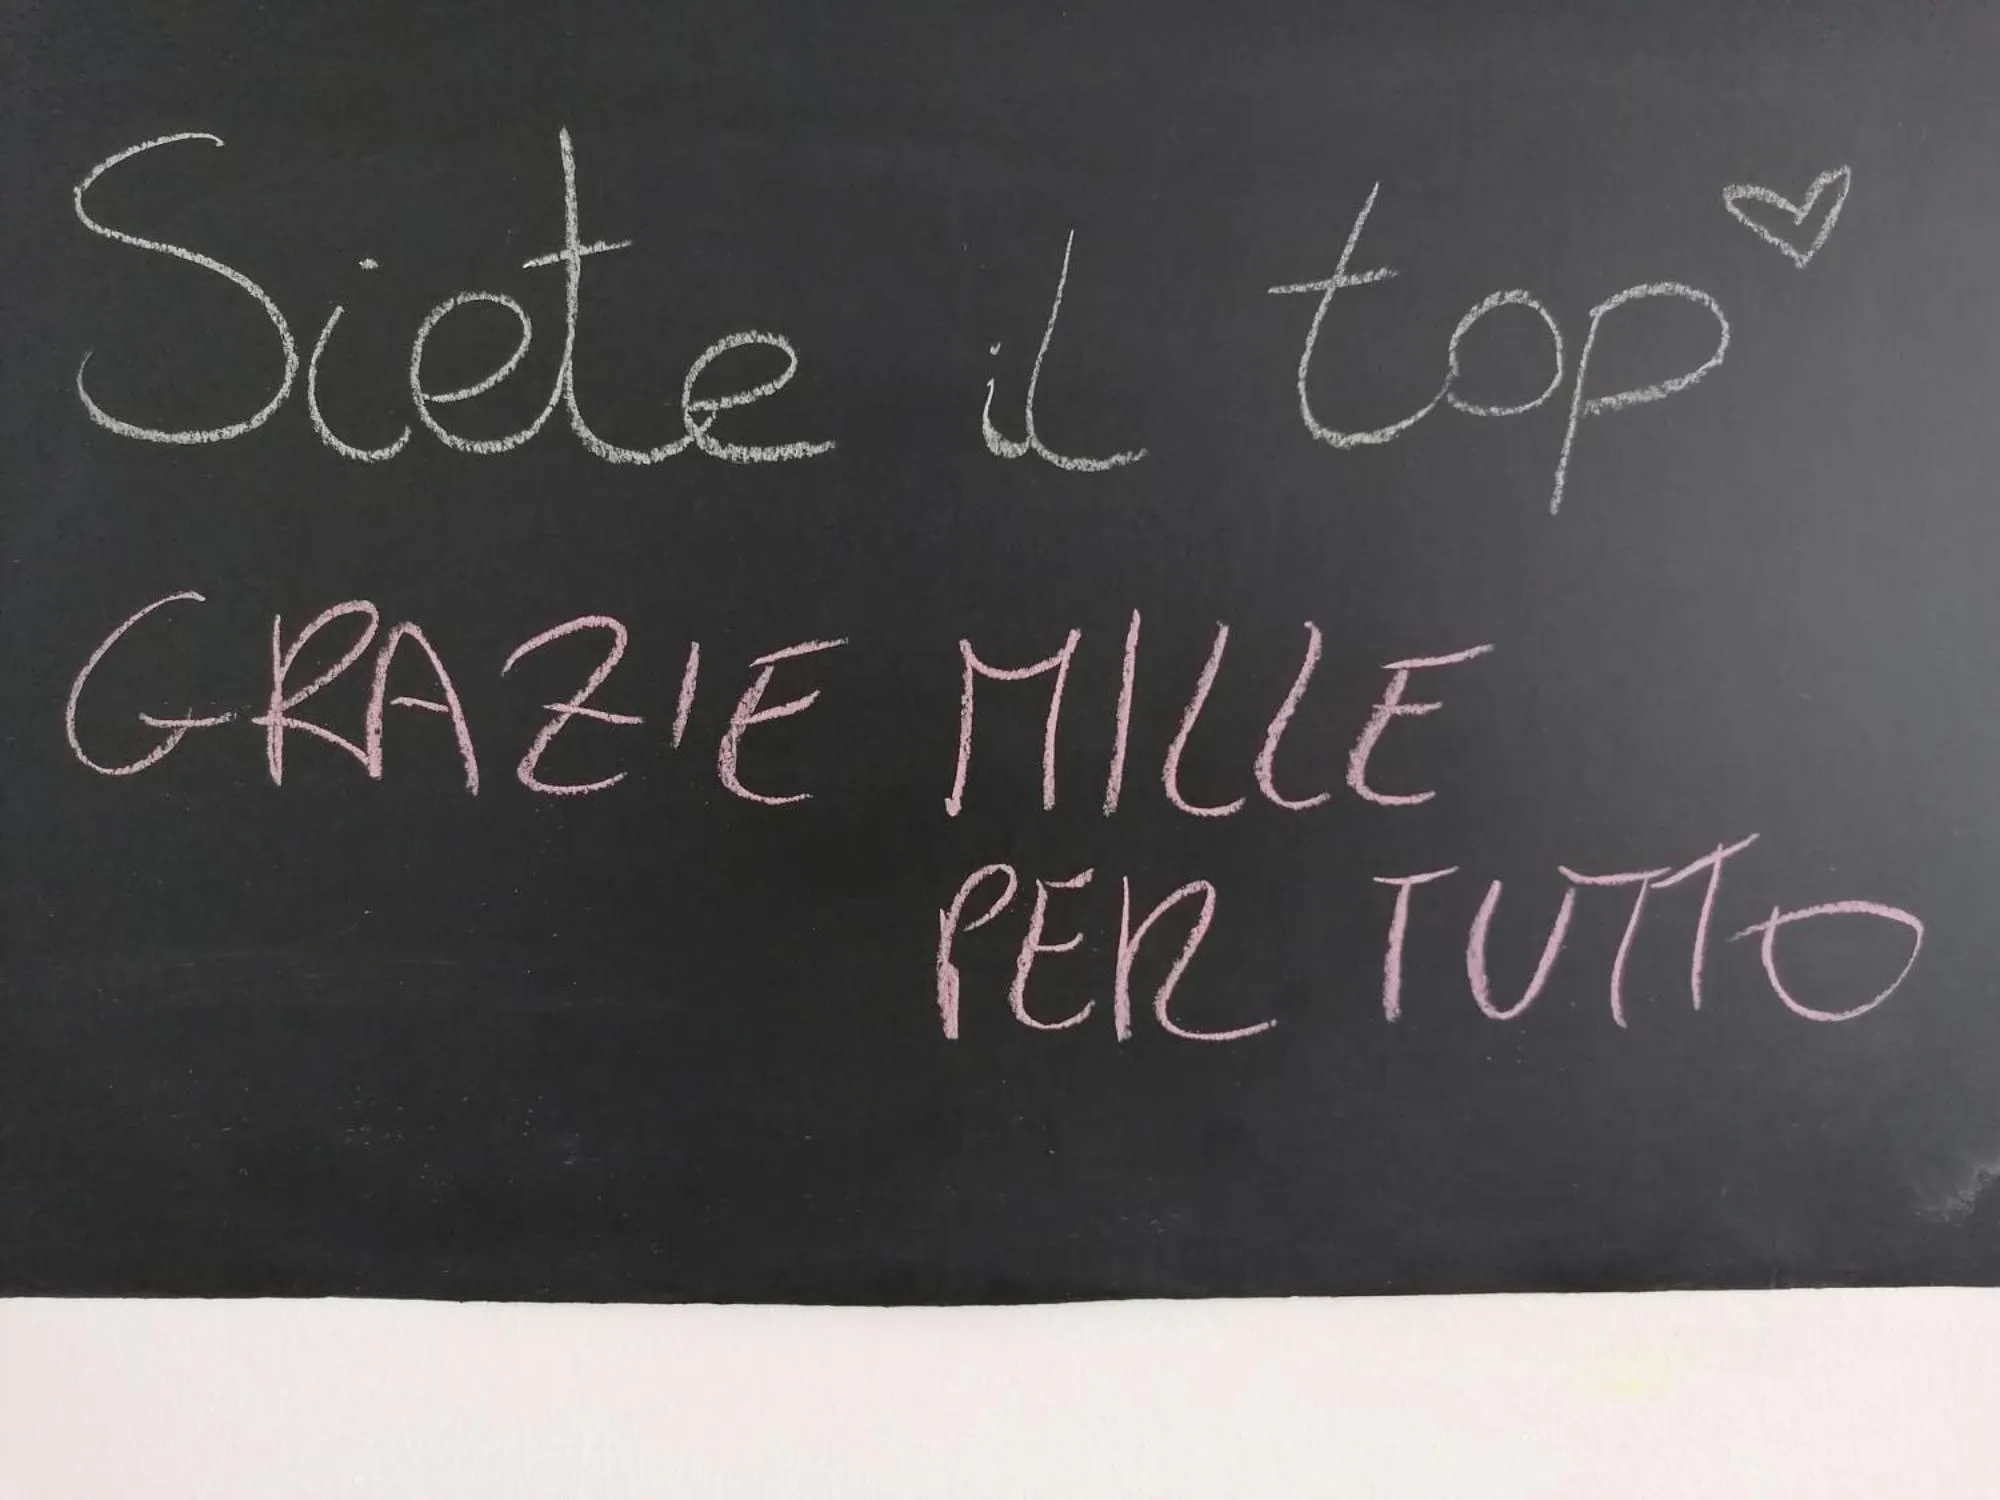 Siete il top ♡
GRAZIE MILLE
PER TUTTO